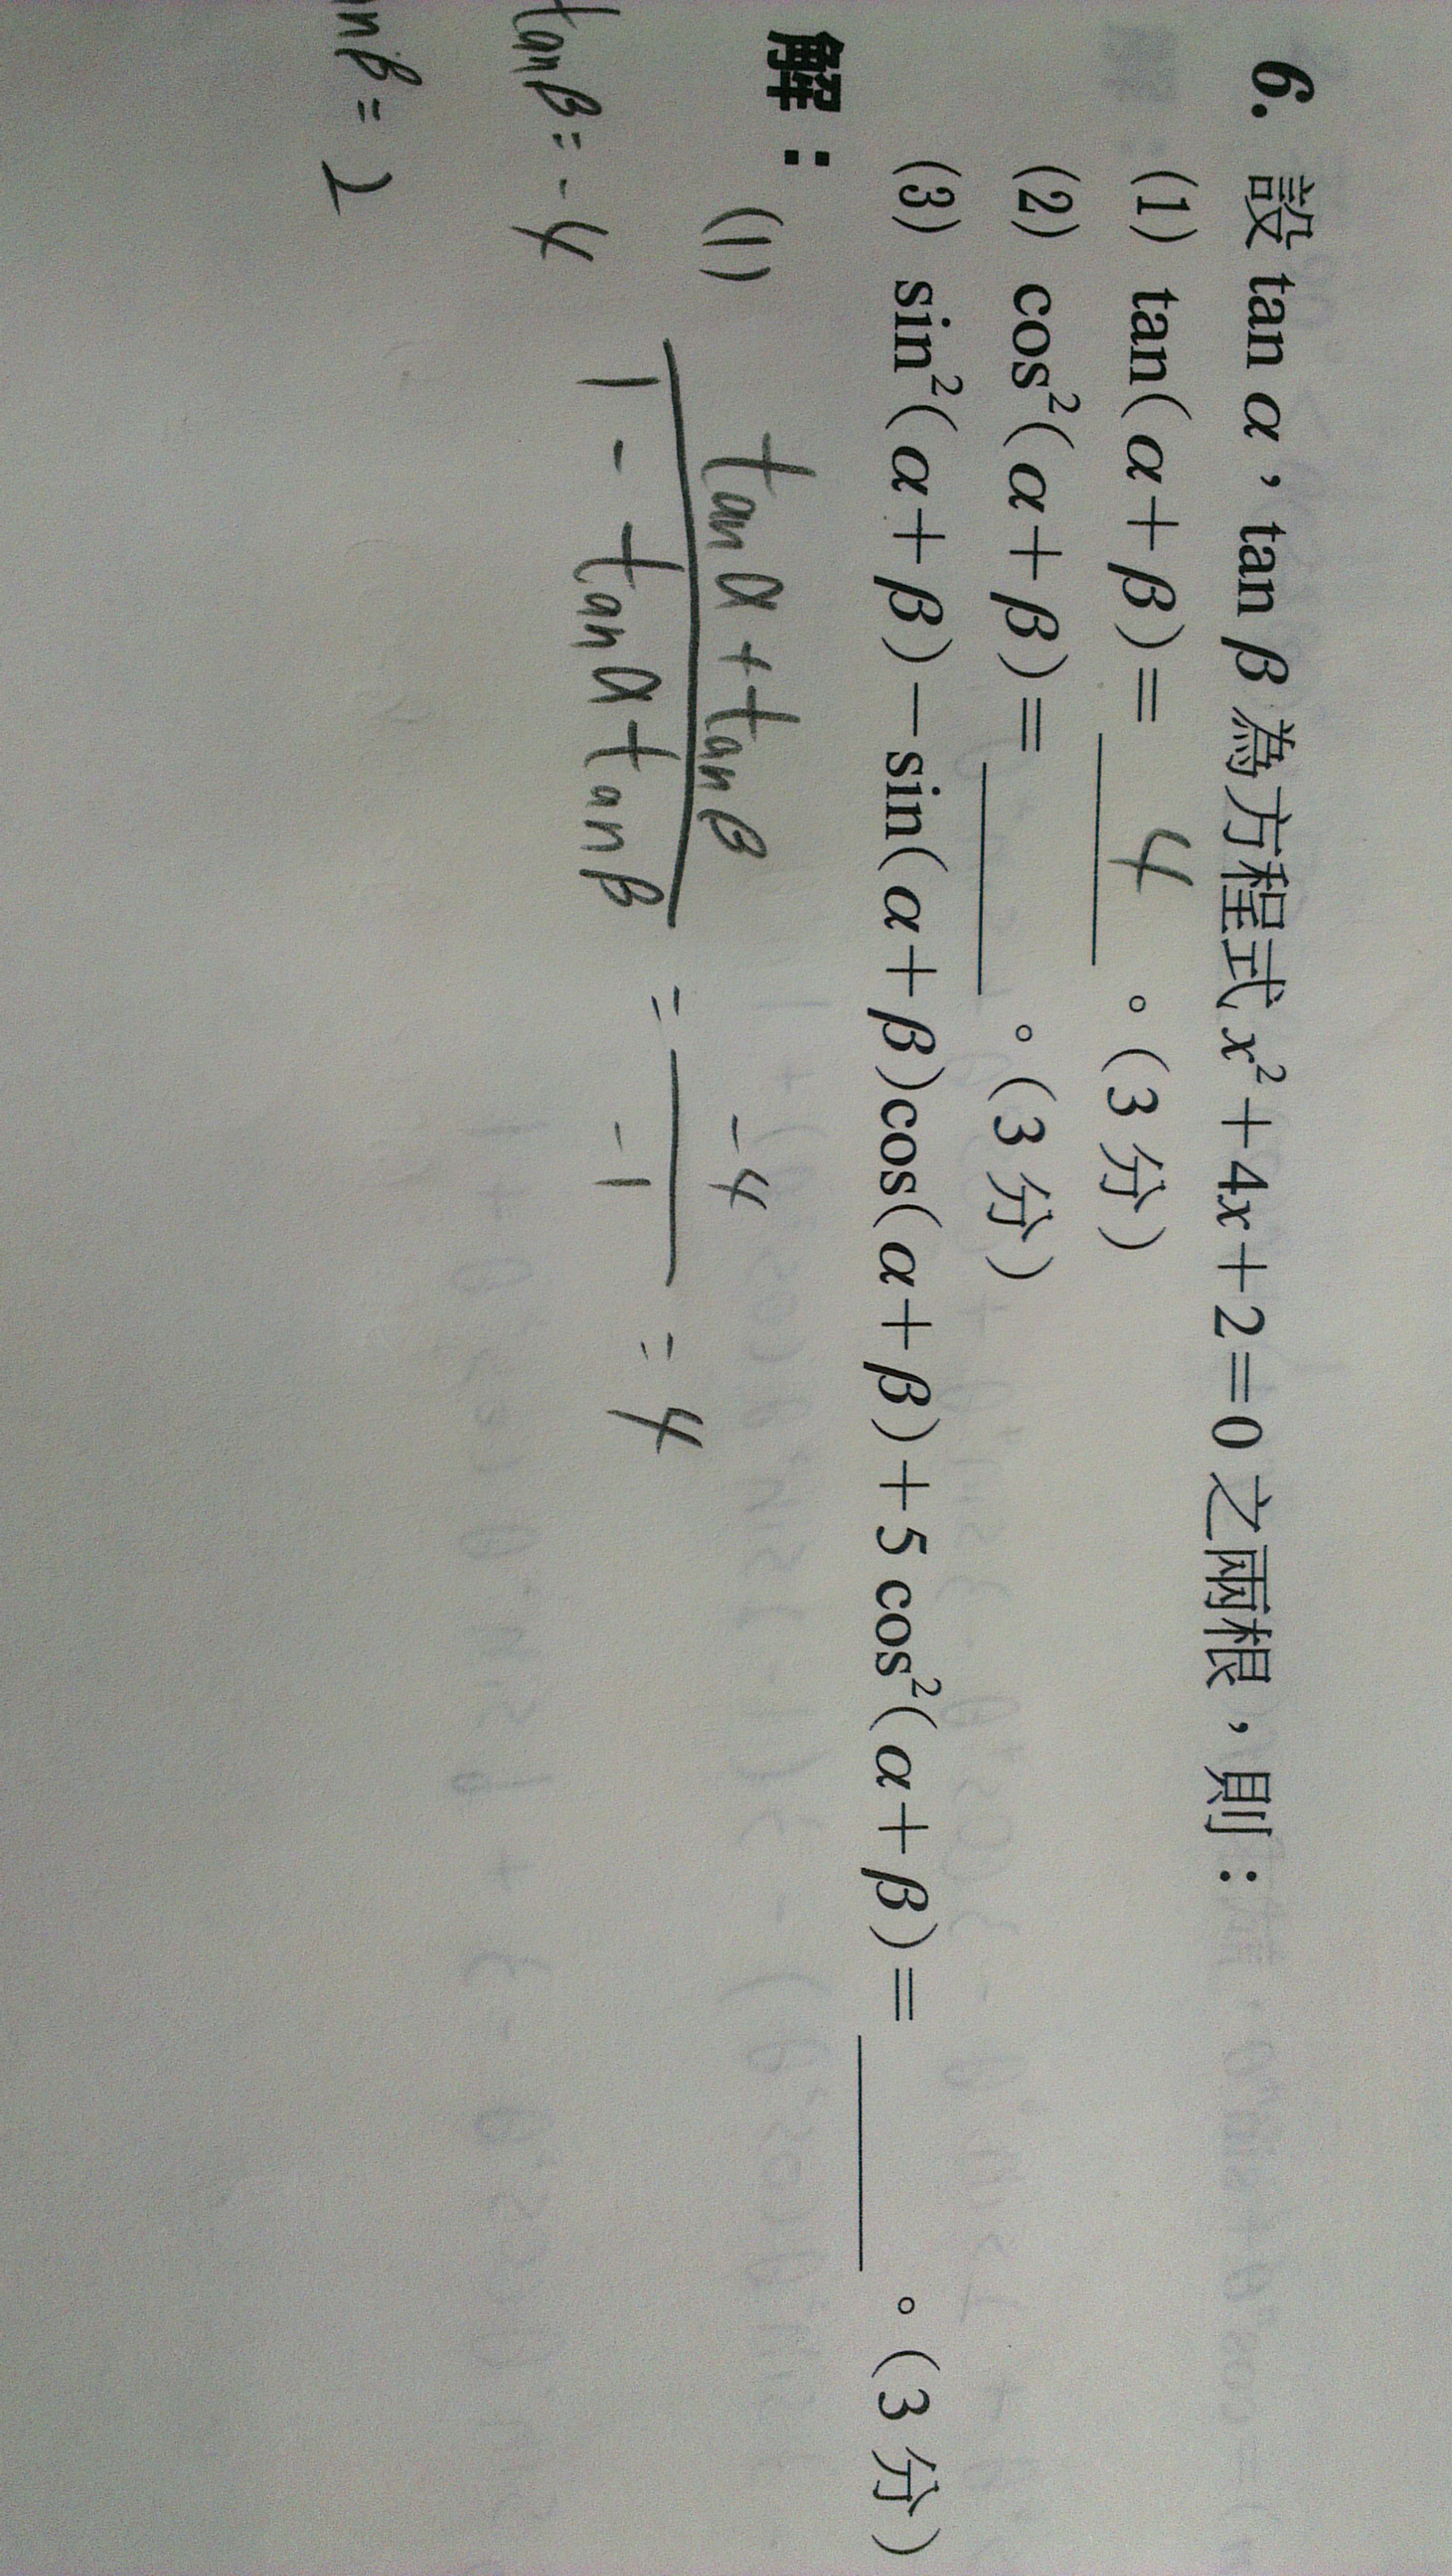 6. 設 tan α，tan β 為方程式 x²+4x+2=0 之兩根，則：
(1) tan(α+β)= 4 。(3分)
(2) cos²(α+β)=＿＿＿。(3分)
(3) sin²(α+β)−sin(α+β)cos(α+β)+5 cos²(α+β)=＿＿＿。(3分)
解：
(1) tanα+tanβ / 1-tanαtanβ = -4 / -1 = 4
tanβ=-4
anβ=2